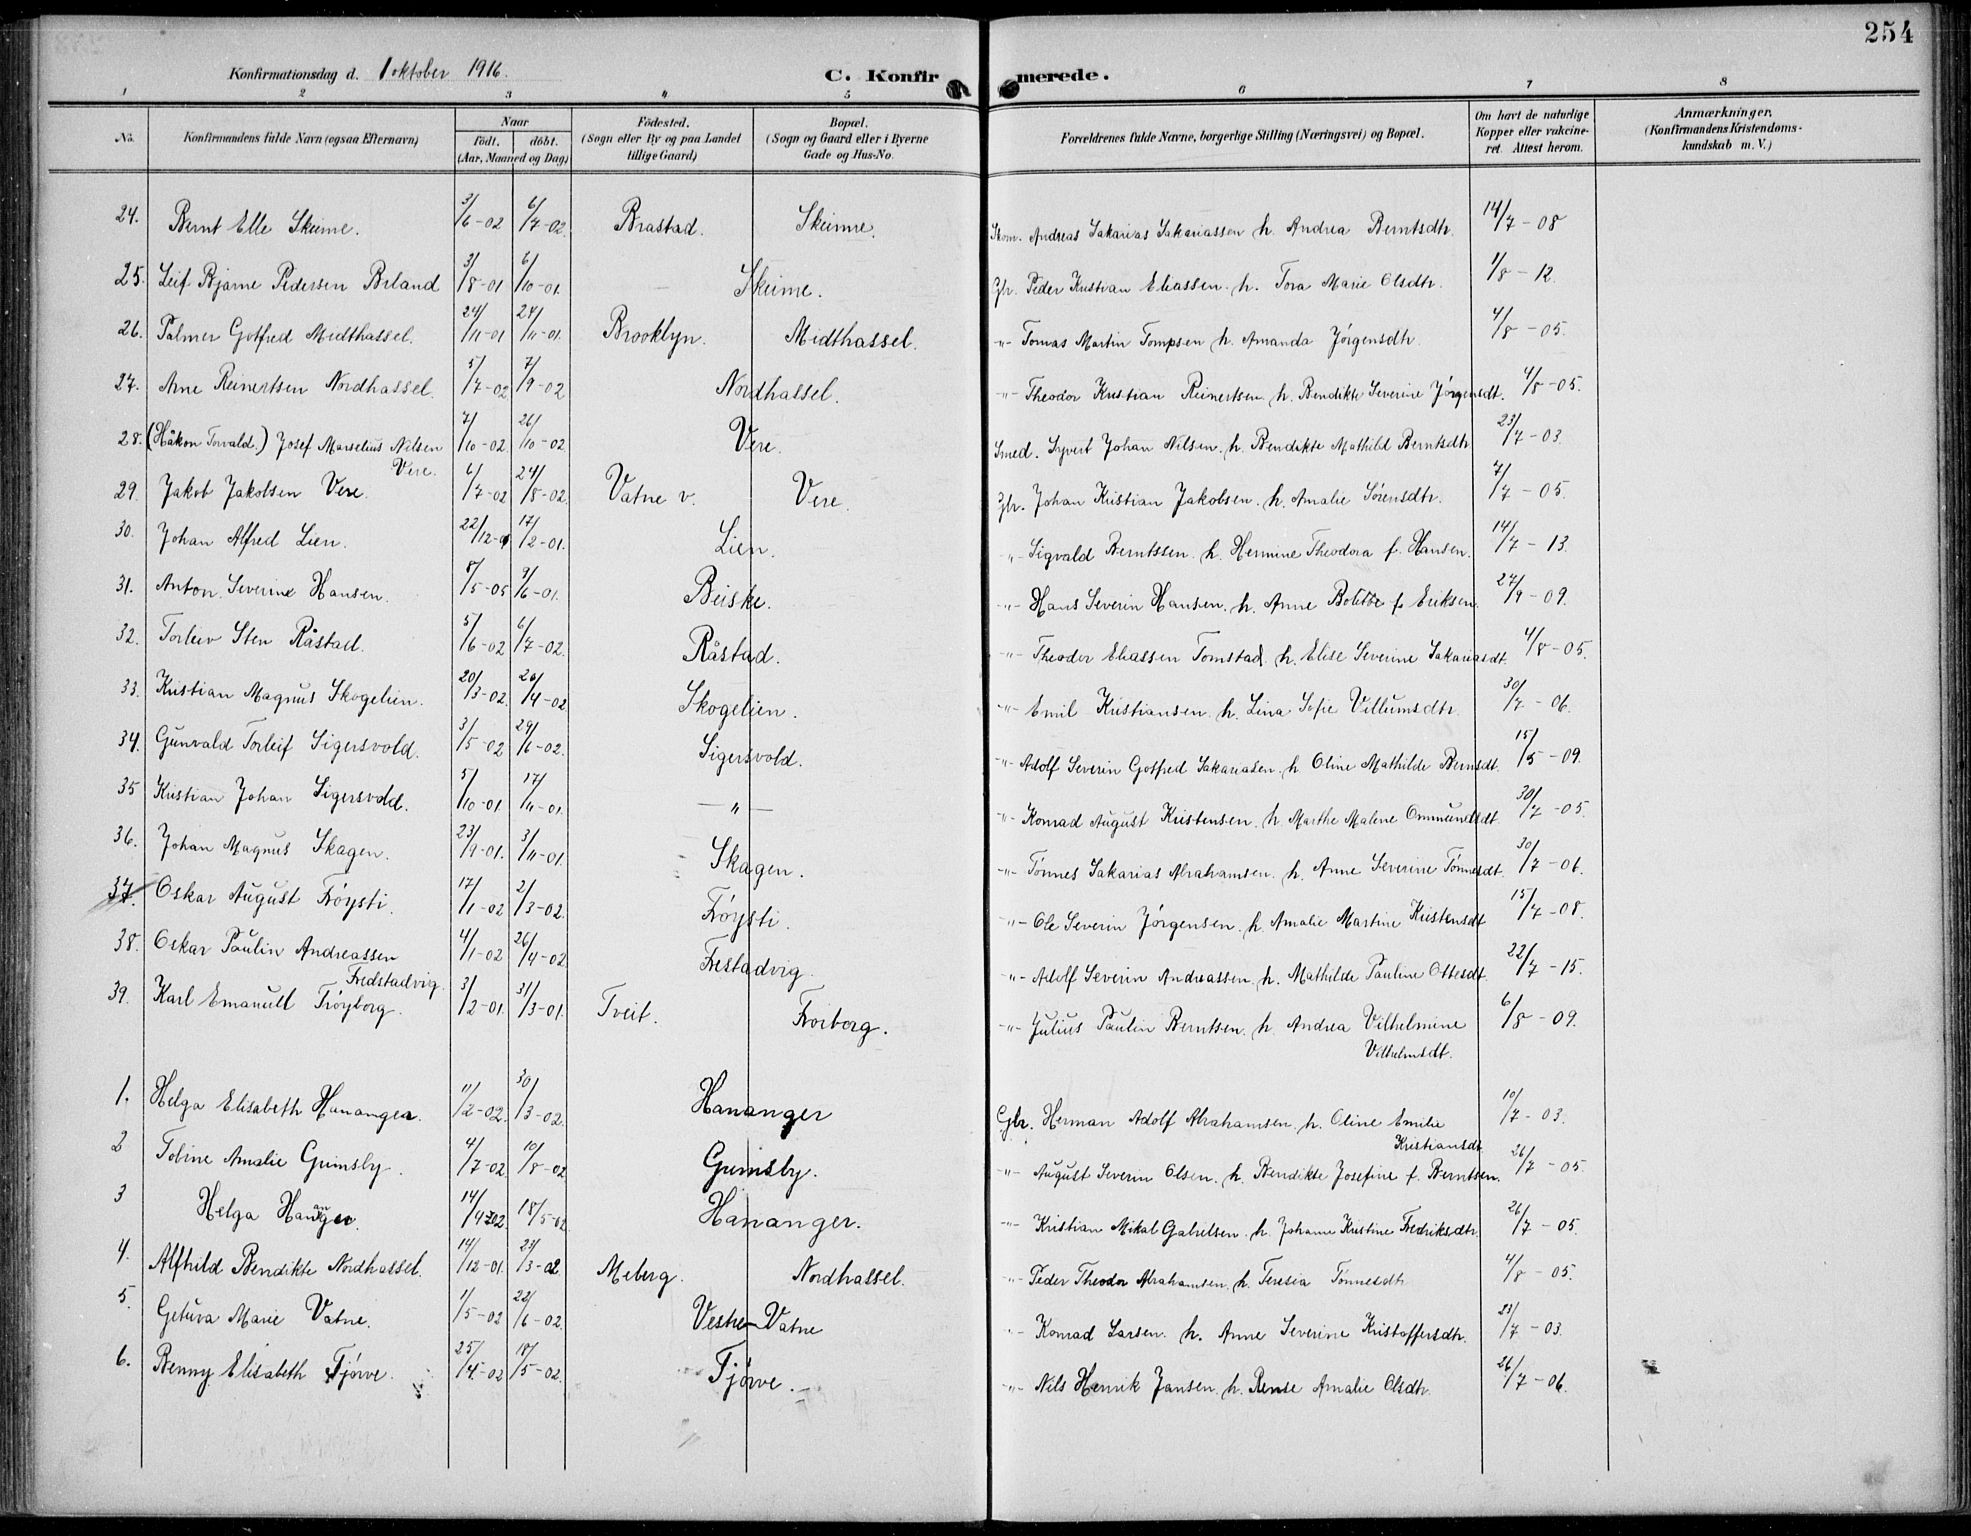 254
Konfirmationsdag d. 1 oktober 1916. C. Konfirmerede.
1 2 3 4 5 6 7 8
No. Konfirmandens fulde Navn (ogsaa Efternavn) Naar födt. döbt. (Aar, Maaned og Dag) Födested. (Sogn eller By og paa Landet tillige Gaard) Bopæl. (Sogn og Gaard eller i Byerne Gade og Hus-No. Forældrenes fulde Navne, borgerlige Stilling (Næringsvei) og Bopæl. Om havt de naturlige Kopper eller vakcineret. Attest herom. Anmærkninger. (Konfirmandens Kristendomskundskab m. V.)
24. Bernt Elle Skeime. 3/6-02 6/7-02. Brastad. Skeime. Skom. Andreas Sakarias Sakariassen h. Andrea Berntsdtr. 14/7-08
25. Leif Bjarne Pedersen Briland 3/8-01 6/10-01. Skeime. Gbr. Peder Kristian Eliassen. h. Tora Marie Olsdtr. 1/8-12.
26. Palmer Gotfred Midthassel. 24/11-01 24/11-01. Brooklyn. Midthassel. -"- Tomas Martin Tompsen h. Amanda Jörgensdtr. 4/8-05.
27. Arne Reinertsen Nordhassel. 5/7-02 7/9-02 Nordhassel. -"- Theodor Kristian Reinertsen. h. Bendikte Severine Jörgensdt. 4/8-05.
28. (Håkon Torvald.) Josef Marselius Nilsen Vere. 7/10-02 26/10-02 Vere. Smed. Syvert Johan Nilsen. h. Bendikte Mathild Berntsdtr 23/7-03.
29. Jakob Jakobsen Vere. 6/7-02 24/8-02. Vatne v. Vere. Gbr. Johan Kristian Jakobsen. h. Amalie Sörensdtr. 7/7-05.
30. Johan Alfred Lien. 22/12-0 17/2-01. Lien. -"- Sigvald Berntssen. h. Hermine Theodora f. Hansen. 14/7-13.
31. Anton Severine Hansen. 8/5-05 9/6-01. Beiske. -"- Hans Severin Hansen. h. Anne Bolette f. Eriksen. 27/9-09.
32. Torleiv Sten Råstad. 5/6-02 6/7-02. Råstad. -"- Theodor Eliassen Tomstad. h. Elise Severine Sakariasdt. 4/8-05.
33. Kristian Magnus Skogelien. 20/3-02. 20/4-02 Skogelien. -"- Emil Kristiansen. h. Lina Sofie Villumsdtr. 30/7-06.
34. Gunvald Torleif Sigersvold. 3/5-02 29/6-02. Sigersvold. -"- Adolf Severin Gotfred Sakariasen. h. Oline Mathilde Berntsdt. 15/5-09.
35 Kristian Johan Sigersvold. 5/10-01. 17/11-01. -"- -"- Konrad August Kristensen. h. Marthe Malene Ommundsdt. 30/7-05.
36. Johan Magnus Skagen. 23/9-01. 3/11-01. Skagen. -"- Tönnes Sakarias Abrahamsen. h. Anne Severine Tönnesdt. 30/7-06.
37. Oskar August Fröysti. 17/1-02 2/3-02. Fröysti. -"- Ole Severin Jörgensen. h. Amalie Martine Kristensdt 15/7-08.
38. Oskar Paulin Andreassen Fredstadvig. 4/1-02 26/4-02. Frestadvig. -"- Adolf Severin Andreassen. h. Mathilde Pauline Ottesdt. 22/7-15.
39. Karl Emanuell Fröyborg. 3/2-01. 31/3-01. Tveit. Froiborg. -"- Julius Paulin Berntsen. h. Andrea Vilhelmine Vilhelmsdt. 6/8-09.
1. Helga Elisabeth Hananger. 11/2-02. 30/3-02. Hananger Gbr. Herman Adolf Abrahamsen. h. Oline Emilie Kristiansdt. 10/7-03.
2 Tobine Amalie Grimsby. 4/7-02. 10/8-02 Grimsby. -"- August Severin Olsen. h. Bendikte Josefine f. Berntsen. 26/7-05.
3 Helga Hananger. 14/4-02. 18/5-02 Hananger. -"- Kristian Mikal Gabrielsen. h. Johanne Kristine Fredriksdtr. 26/7-05.
4. Alfhild Bendikte Nordhassel. 14/12-01. 23/3-02. Meberg. Nordhassel. -"- Peder Theodor Abrahamsen. h. Teresia Tönnesdtr. 4/8-05.
5. Getuva Marie Vatne. 1/5-02 22/6-02. Vestre-Vatne -"- Konrad Larsen. h. Anne Severine Kristoffersdtr. 23/7-03.
6. Benny Elisabeth Tjörve. 25/4-02 18/5-02. Tjörve. -"- Nils Henrik Jansen. h. Rense Amalie Olsdtr. 26/7-06.